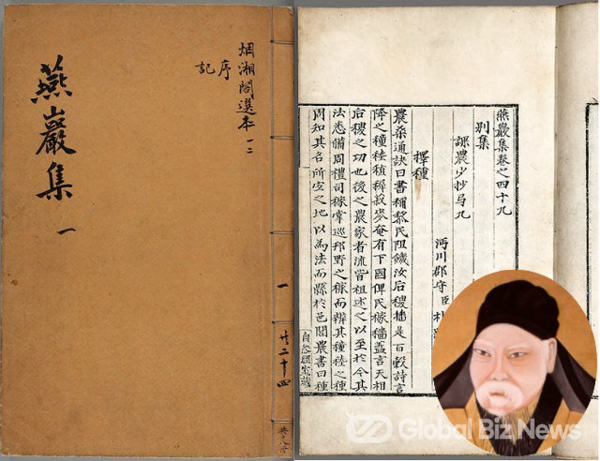 烟湘閣選本 一二
序
記
燕巖集 一
一
燕巖集卷之四十九
別集
課農少抄
沔川郡守臣朴
擇種
農桑通訣曰書稱黎民阻饑汝后稷播是百穀詩言
降之種稑稙穉菽麥奄有下國俾民稼穡蓋言天相
后稷之功也後之農家者流當祖述之以至於今其
法悉備周禮司稼掌巡邦野之稼而辨其穜稑之種
周知其名所宜之地以為法而縣於邑閭農書曰種
自然經室藏
Global Biz News